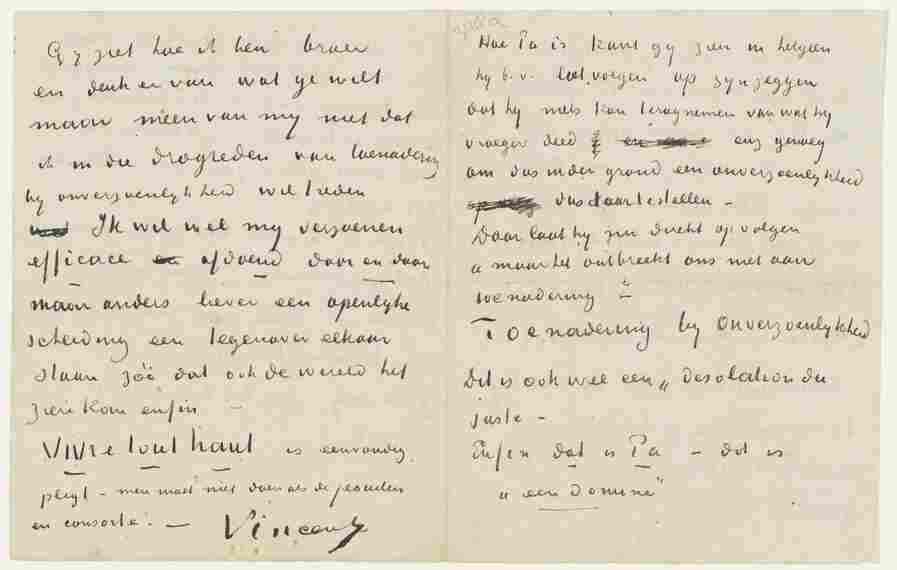 Gy ziet hoe ik ben broer
en denk er van wat ge wilt
maar meen van my niet dat
ik in die drogreden van toenadering
by onverzoenlykheid wil treden
Ik wil wel my verzoenen
efficace afdoend door en door
maar anders liever een openlyke
scheiding een tegenover elkaar
staan zóó dat ook de wereld het
zien kan enfin –
Vivre tout haut is eenvoudig
pligt – men moet niet doen als de jesuiten
en consorte. – Vincent
Hoe Pa is kunt gy zien in hetgeen
hy b.v. laat volgen op zyn zeggen
dat hy niets kan terugnemen van wat hy
vroeger deed enz genoeg
om dus in den grond een onverzoenlykheid
dus daartestellen –
Daar laat hy direkt op volgen
„maar het ontbreekt ons niet aan
toenadering"
Toenadering by onverzoenlykheid
Dit is ook wel een „desolation du
juste –
Enfin dat is Pa – dat is
„een domine"